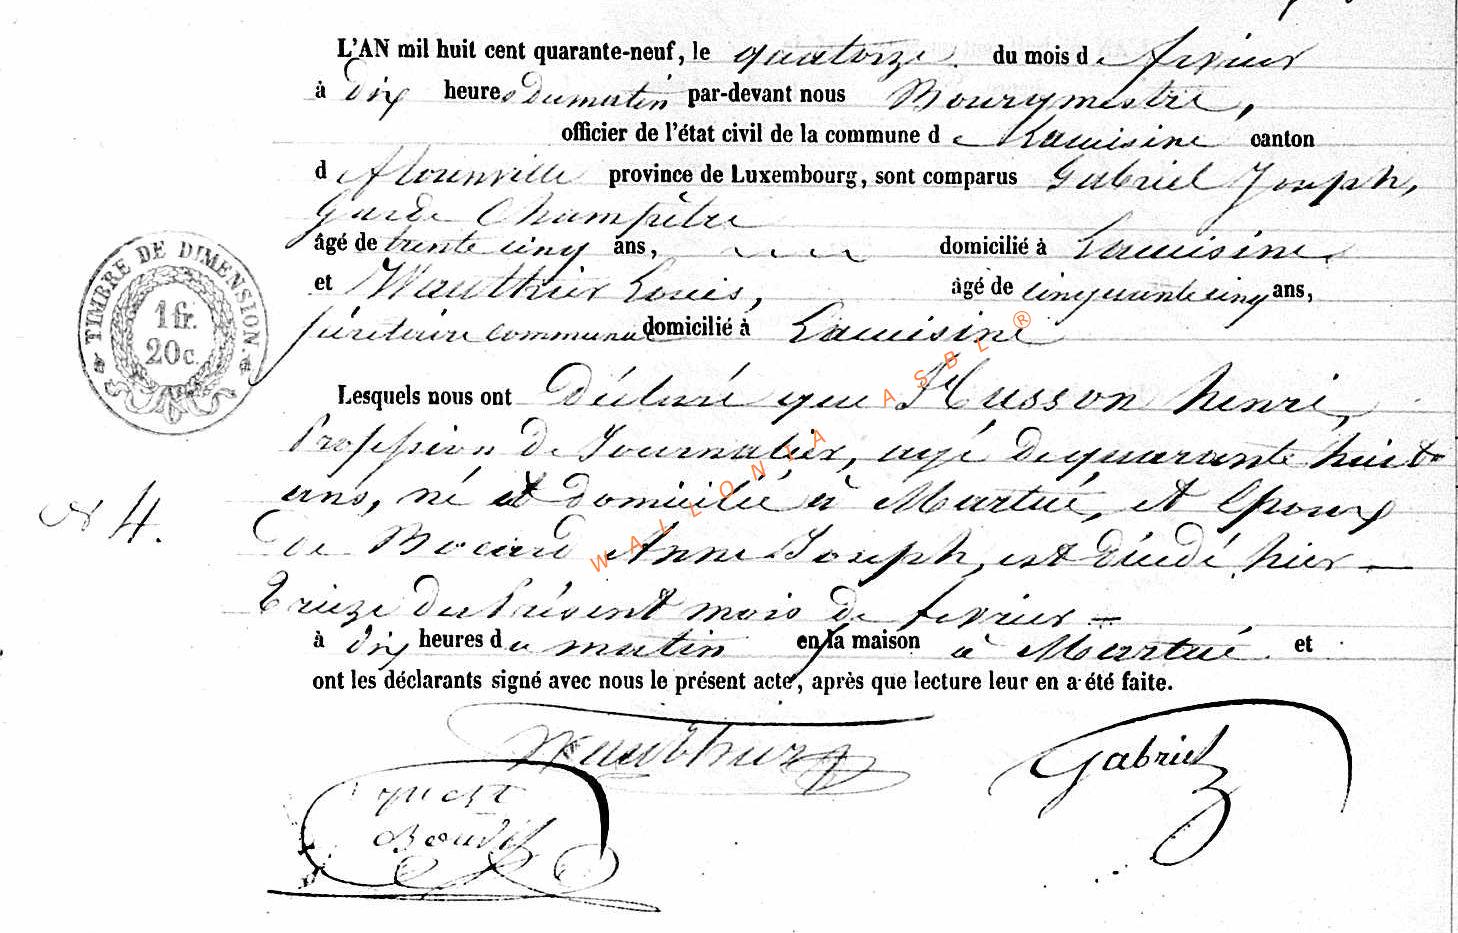 L'AN mil huit cent quarante-neuf, le quatorze du mois de fevrier
à dix heures du matin par-devant nous Bourgmestre,
officier de l'état civil de la commune de Lacuisine canton
de florenville province de Luxembourg, sont comparus Gabriel Joseph,
Garde Champêtre
âgé de trente cinq ans, domicilié à Lacuisine
et Wauthier Louis, âgé de cinquante cinq ans,
sécretaire communal domicilié à Lacuisine
Lesquels nous ont Déclaré que Husson henri,
Profession de Journalier, agé de quarante huit
ans, né et domicilié à Martué, et Epoux
de Bocard Anne Joseph, est décédé hier
treize du Présent mois de fevrier
à dix heures du matin en la maison à Martué et
ont les déclarants signé avec nous le présent acte, après que lecture leur en a été faite.
N 4.
TIMBRE DE DIMENSION.
1 fr.
20 c.
WALLONIA ASBL ®
Wauthier
Gabriel